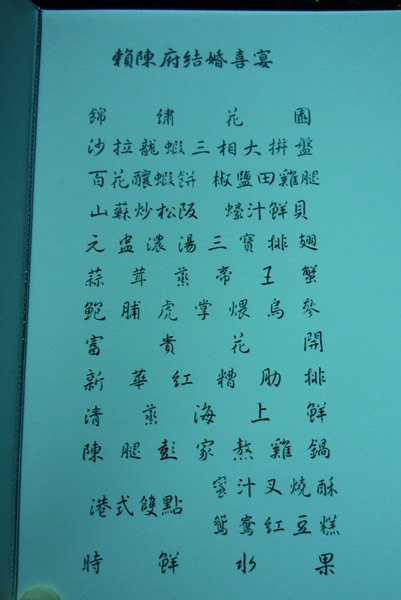 賴陳府結婚喜宴
錦繡花園
沙拉龍蝦三相大拼盤
百花釀蝦餅 椒鹽田雞腿
山蘇炒松阪 蠔汁鮮貝
元盅濃湯三寶排翅
蒜茸蒸帝王蟹
鮑脯虎掌煨烏參
富貴花開
新華紅糟肋排
清蒸海上鮮
陳腿彭家熬雞鍋
港式雙點
蜜汁叉燒酥
鴛鴦紅豆糕
時鮮水果